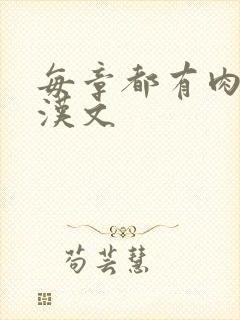 每章都有肉
漢文
苟芸慧